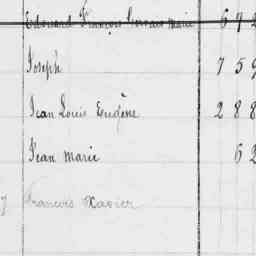 Edouard François Germain Marie 672
Joseph 759
Jean Louis Eugène 288
Jean Marie 62
François Xavier